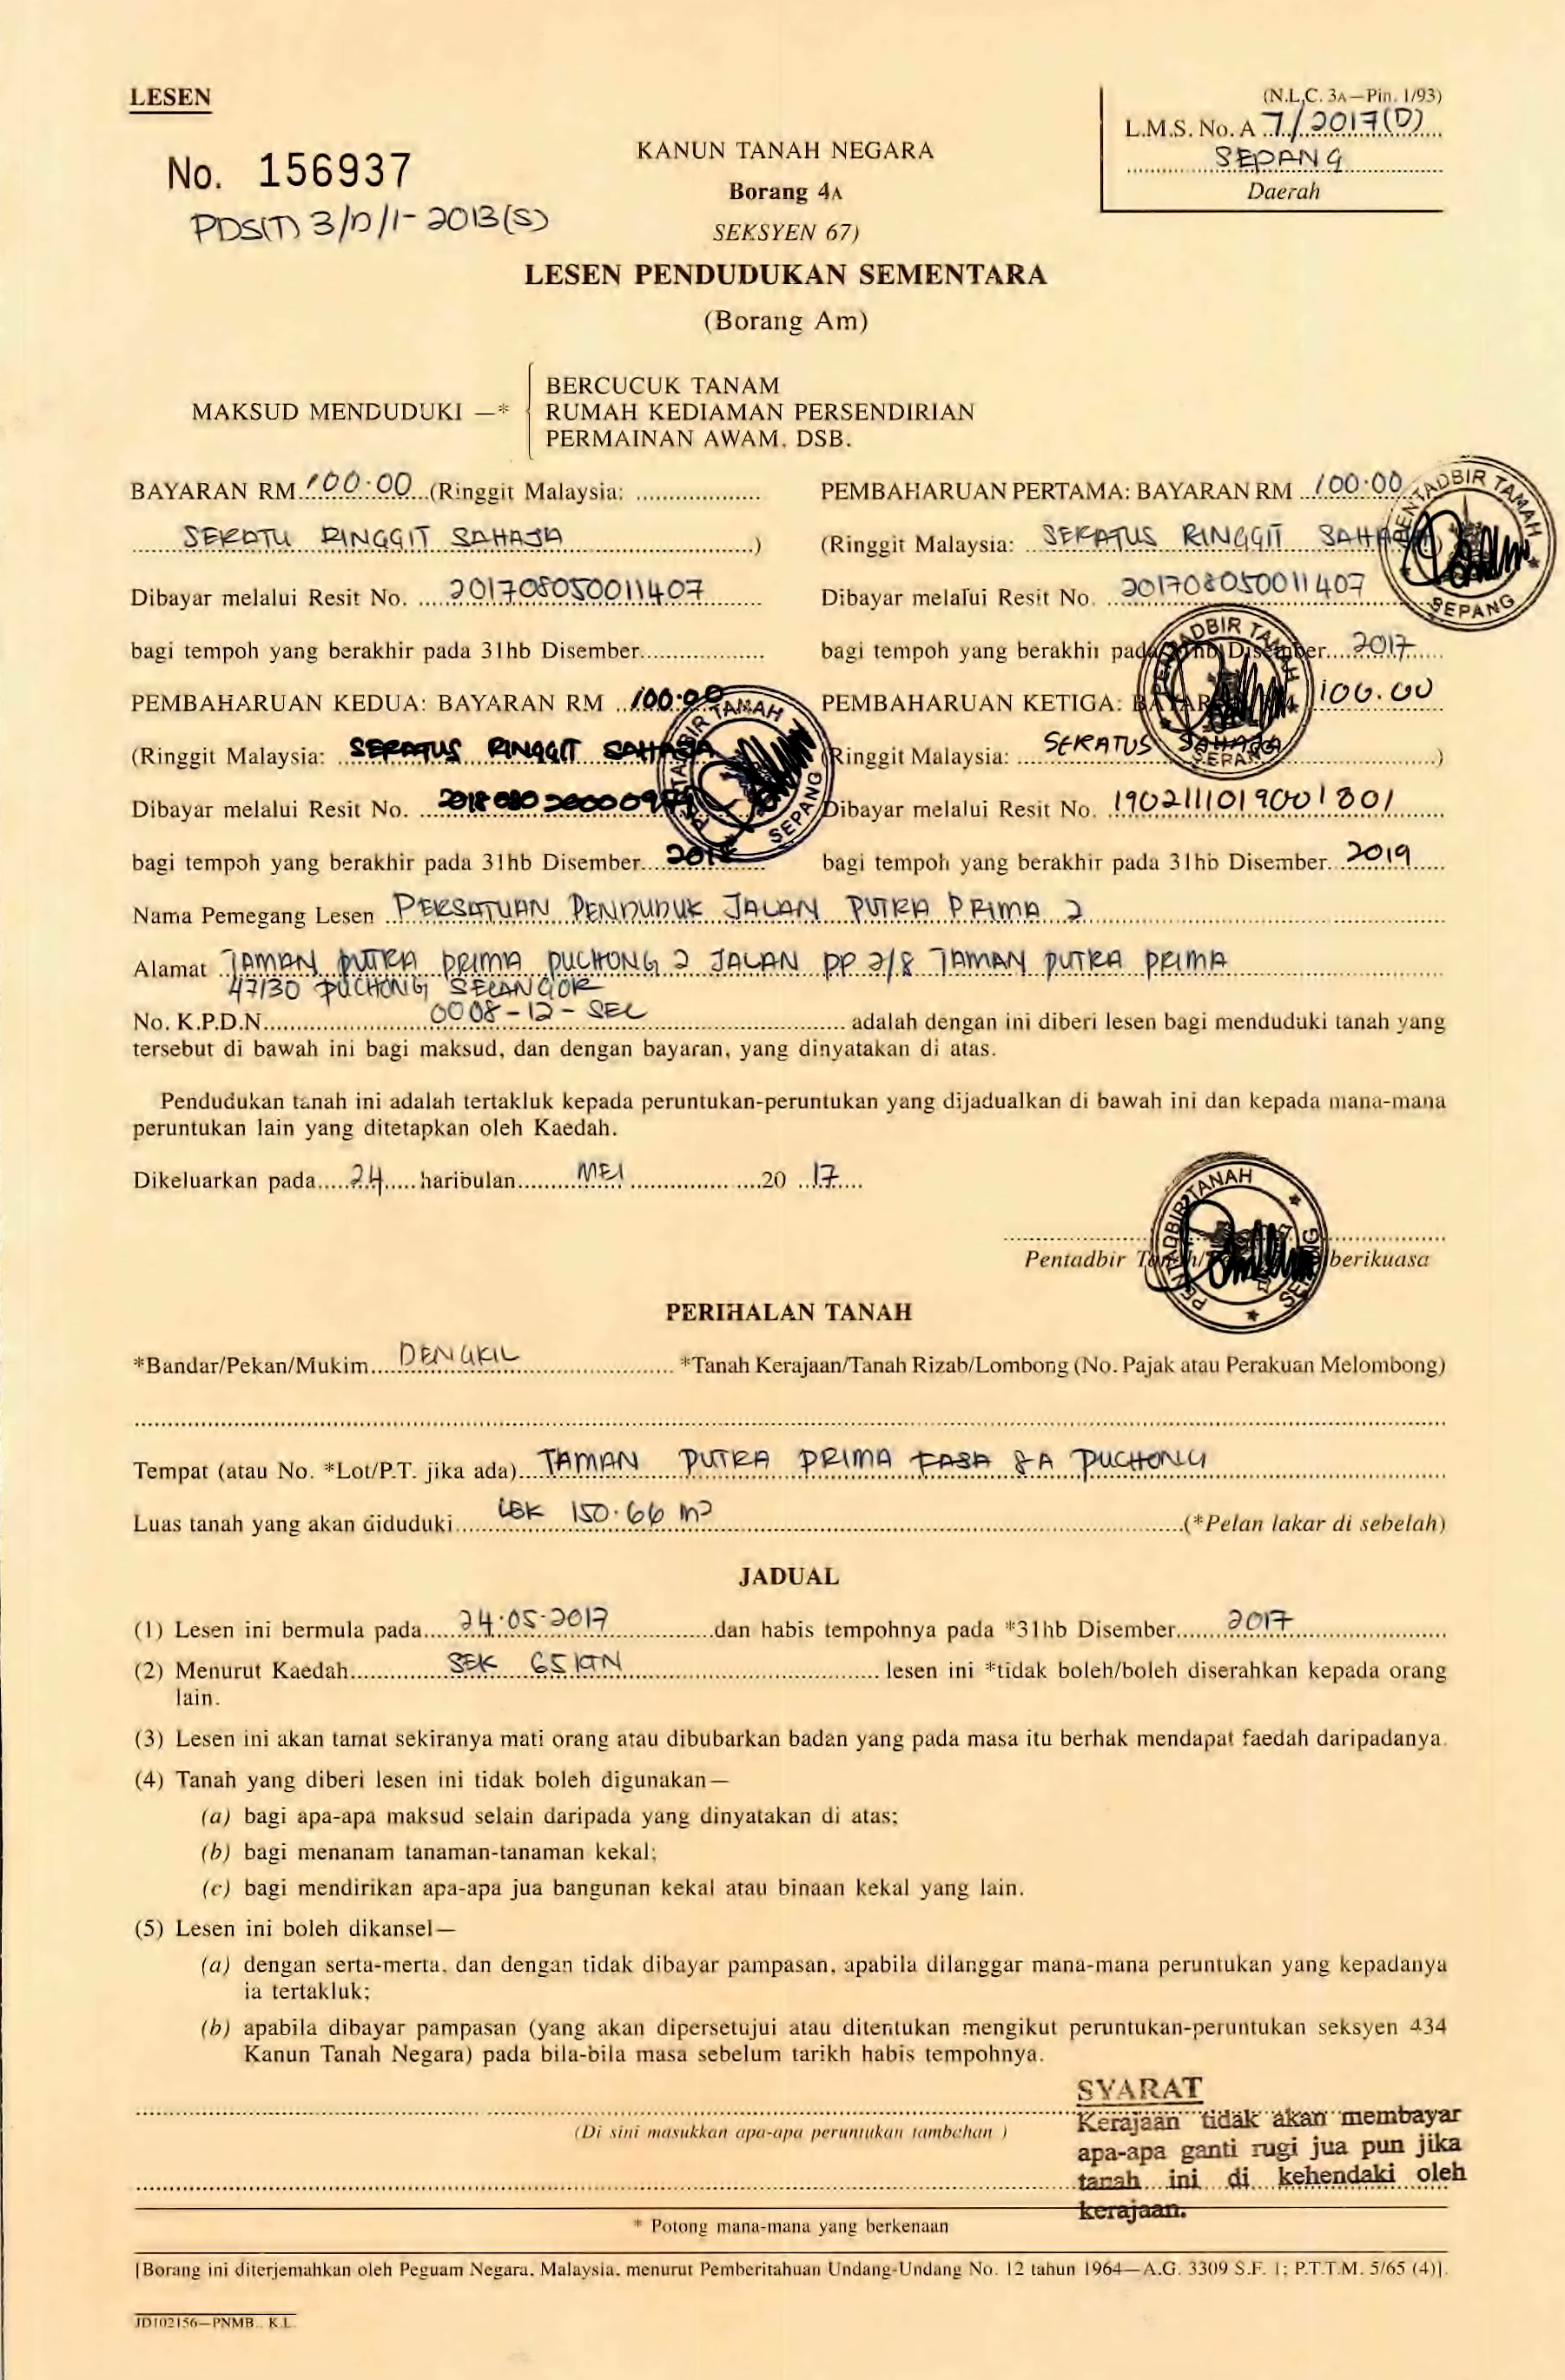 LESEN
(N.L.C. 3A—Pin. 1/93)
L.M.S. No. A 7/2017(D)
SEPANG
Daerah
No. 156937
PDS(T) 3/D/1-2013(S)
KANUN TANAH NEGARA
Borang 4A
SEKSYEN 67)
LESEN PENDUDUKAN SEMENTARA
(Borang Am)
MAKSUD MENDUDUKI —*
BERCUCUK TANAM
RUMAH KEDIAMAN PERSENDIRIAN
PERMAINAN AWAM. DSB.
BAYARAN RM 100.00 (Ringgit Malaysia:
SERATU RINGGIT SAHAJA )
Dibayar melalui Resit No. 201708050011407
bagi tempoh yang berakhir pada 31hb Disember
PEMBAHARUAN PERTAMA: BAYARAN RM 100.00
(Ringgit Malaysia: SERATUS RINGGIT
Dibayar melalui Resit No. 201708050011407
bagi tempoh yang berakhir pada Disember 2017
PEMBAHARUAN KEDUA: BAYARAN RM 100.00
(Ringgit Malaysia: SERATUS RINGGIT SAHAJA
Dibayar melalui Resit No.
bagi tempoh yang berakhir pada 31hb Disember
PEMBAHARUAN KETIGA: 100.00
Ringgit Malaysia: SERATUS SAHAJA )
Dibayar melalui Resit No. 1902111019001801
bagi tempoh yang berakhir pada 31hb Disember 2019
PENTADBIR TANAH
SEPANG
PENTADBIR TANAH
SEPANG
PENTADBIR TANAH
SEPANG
Nama Pemegang Lesen PERSATUAN PENDUDUK JALAN PUTRA PRIMA 2
Alamat TAMAN PUTRA PRIMA PUCHONG 2 JALAN PP 2/8 TAMAN PUTRA PRIMA
47130 PUCHONG SELANGOR
No. K.P.D.N. 0008-12-SEL adalah dengan ini diberi lesen bagi menduduki tanah yang
tersebut di bawah ini bagi maksud, dan dengan bayaran, yang dinyatakan di atas.
Pendudukan tanah ini adalah tertakluk kepada peruntukan-peruntukan yang dijadualkan di bawah ini dan kepada mana-mana
peruntukan lain yang ditetapkan oleh Kaedah.
Dikeluarkan pada 24 haribulan MEI 20 17
PENTADBIR TANAH
SEPANG
Pentadbir berikuasa
PERIHALAN TANAH
*Bandar/Pekan/Mukim DENGKIL *Tanah Kerajaan/Tanah Rizab/Lombong (No. Pajak atau Perakuan Melombong)
Tempat (atau No. *Lot/P.T. jika ada) TAMAN PUTRA PRIMA FASA 8A PUCHONG
Luas tanah yang akan diduduki LBK 150.66 m² (*Pelan lakar di sebelah)
JADUAL
(1) Lesen ini bermula pada 24.05.2017 dan habis tempohnya pada *31hb Disember 2017
(2) Menurut Kaedah SEK 65 KTN lesen ini *tidak boleh/boleh diserahkan kepada orang
lain.
(3) Lesen ini akan tamat sekiranya mati orang atau dibubarkan badan yang pada masa itu berhak mendapat faedah daripadanya.
(4) Tanah yang diberi lesen ini tidak boleh digunakan—
(a) bagi apa-apa maksud selain daripada yang dinyatakan di atas;
(b) bagi menanam tanaman-tanaman kekal;
(c) bagi mendirikan apa-apa jua bangunan kekal atau binaan kekal yang lain.
(5) Lesen ini boleh dikansel—
(a) dengan serta-merta, dan dengan tidak dibayar pampasan, apabila dilanggar mana-mana peruntukan yang kepadanya
ia tertakluk;
(b) apabila dibayar pampasan (yang akan dipersetujui atau ditentukan mengikut peruntukan-peruntukan seksyen 434
Kanun Tanah Negara) pada bila-bila masa sebelum tarikh habis tempohnya.
(Di sini masukkan apa-apa peruntukan tambahan )
SYARAT
Kerajaan tidak akan membayar
apa-apa ganti rugi jua pun jika
tanah ini di kehendaki oleh
kerajaan.
* Potong mana-mana yang berkenaan
[Borang ini diterjemahkan oleh Peguam Negara, Malaysia, menurut Pemberitahuan Undang-Undang No. 12 tahun 1964—A.G. 3309 S.F. 1; P.T.T.M. 5/65 (4)].
JD102156—PNMB., K.L.